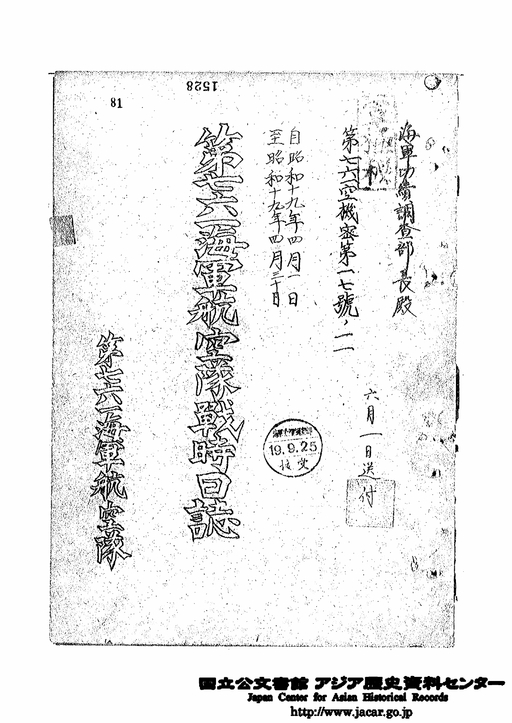 1528
81
海軍功績調査部長殿
第七六一空機密第一七號ノ一一
六月一日送付
自昭和十九年四月一日
至昭和十九年四月三十日
第七六一海軍航空隊戦時日誌
19.9.25
接受
第七六一海軍航空隊
国立公文書館 アジア歴史資料センター
Japan Center for Asian Historical Records
http://www.jacar.go.jp